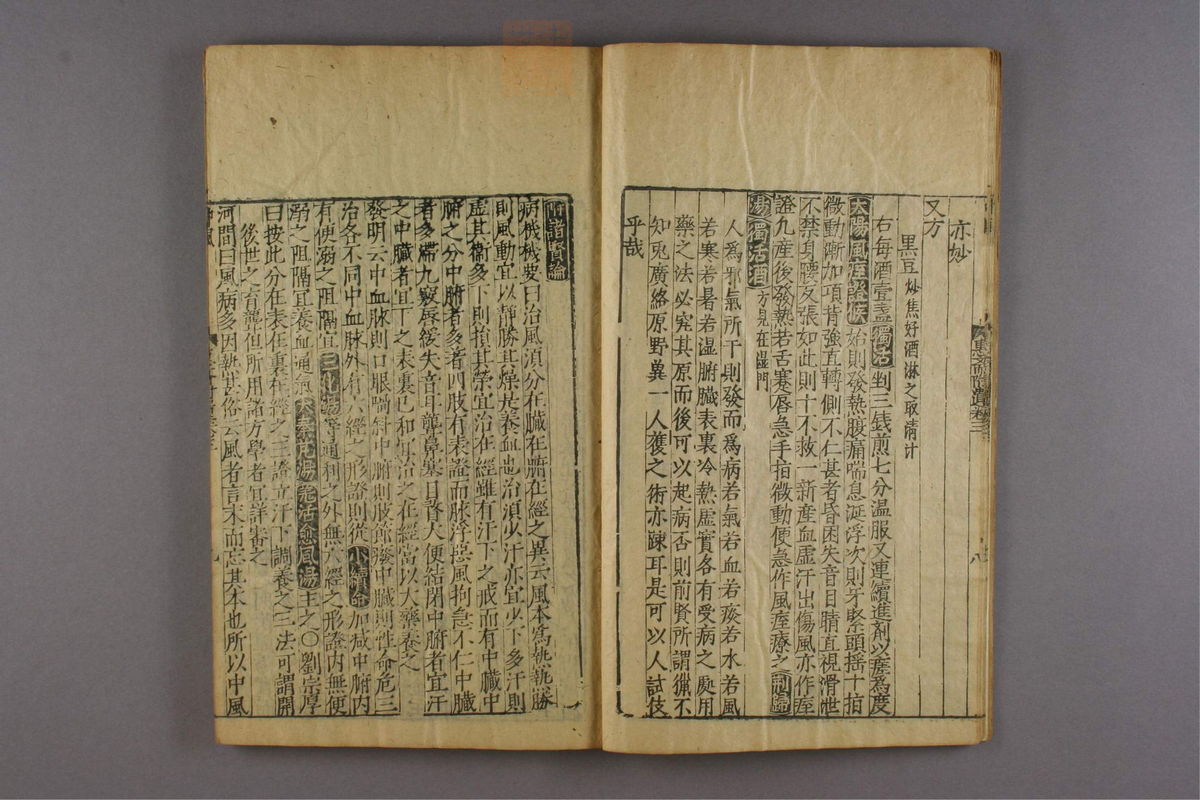 亦妙
又方
黑豆炒焦好酒淋之取清汁
右每酒壹盞獨活剉三錢煎七分温服又連續進劑以瘥為度
太陽風痓證候始則發熱腹痛喘息涎浮次則牙緊頭揺十指
微動漸加項背強直轉側不仁甚者昏困失音目睛直視滑泄
不禁身腰反張如此則十不救一新産血虚汗出傷風亦作痓
證九産後發熱若舌蹇唇急手指微動便急作風痓療之荆歸
湯獨活酒方見在濕門
人為邪氣所干則發而為病若氣若血若痰若水若風
若寒若暑若濕腑臓表裏冷熱虚實各有受病之處用
藥之法必究其原而後可以起病否則前賢所謂獵不
知兎廣絡原野冀一人獲之術亦踈耳是可以人試伎
乎哉
附諸賢論
病機機要曰治風湏分在臟在腑在經之異云風本爲熱熱勝
則風動宜以靜勝其燥共養血也治湏少汗亦宜少下多汗則
虚其衛多下則損其榮宜治在經雖有汗下之戒而有中臓中
腑之分中腑者多著四肢有表證而脉浮惡風拘急不仁中臓
者多滯九竅唇緩失音耳聾鼻塞目瞀大便結閉中腑者宜汗
之中臓者宜下之表裏已和宜治之在經當以大藥養之
發明云中血脉則口眼喎斜中腑則肢節癈中臓則性命危三
治各不同中血脉外有六經之形證則從小續命加减中腑内
有便溺之阻隔宜三化湯等通利之外無六經之形證内無便
溺之阻隔宜養血通氣大秦艽湯羌活愈風湯主之〇劉宗厚
曰按此分在表在裏在經之三證立汗下調養之三法可謂開
後世之盲聾但所用諸方學者宜詳審之
河間曰風病多因熱甚俗云風者言末而忘其本也所以中風
八
九